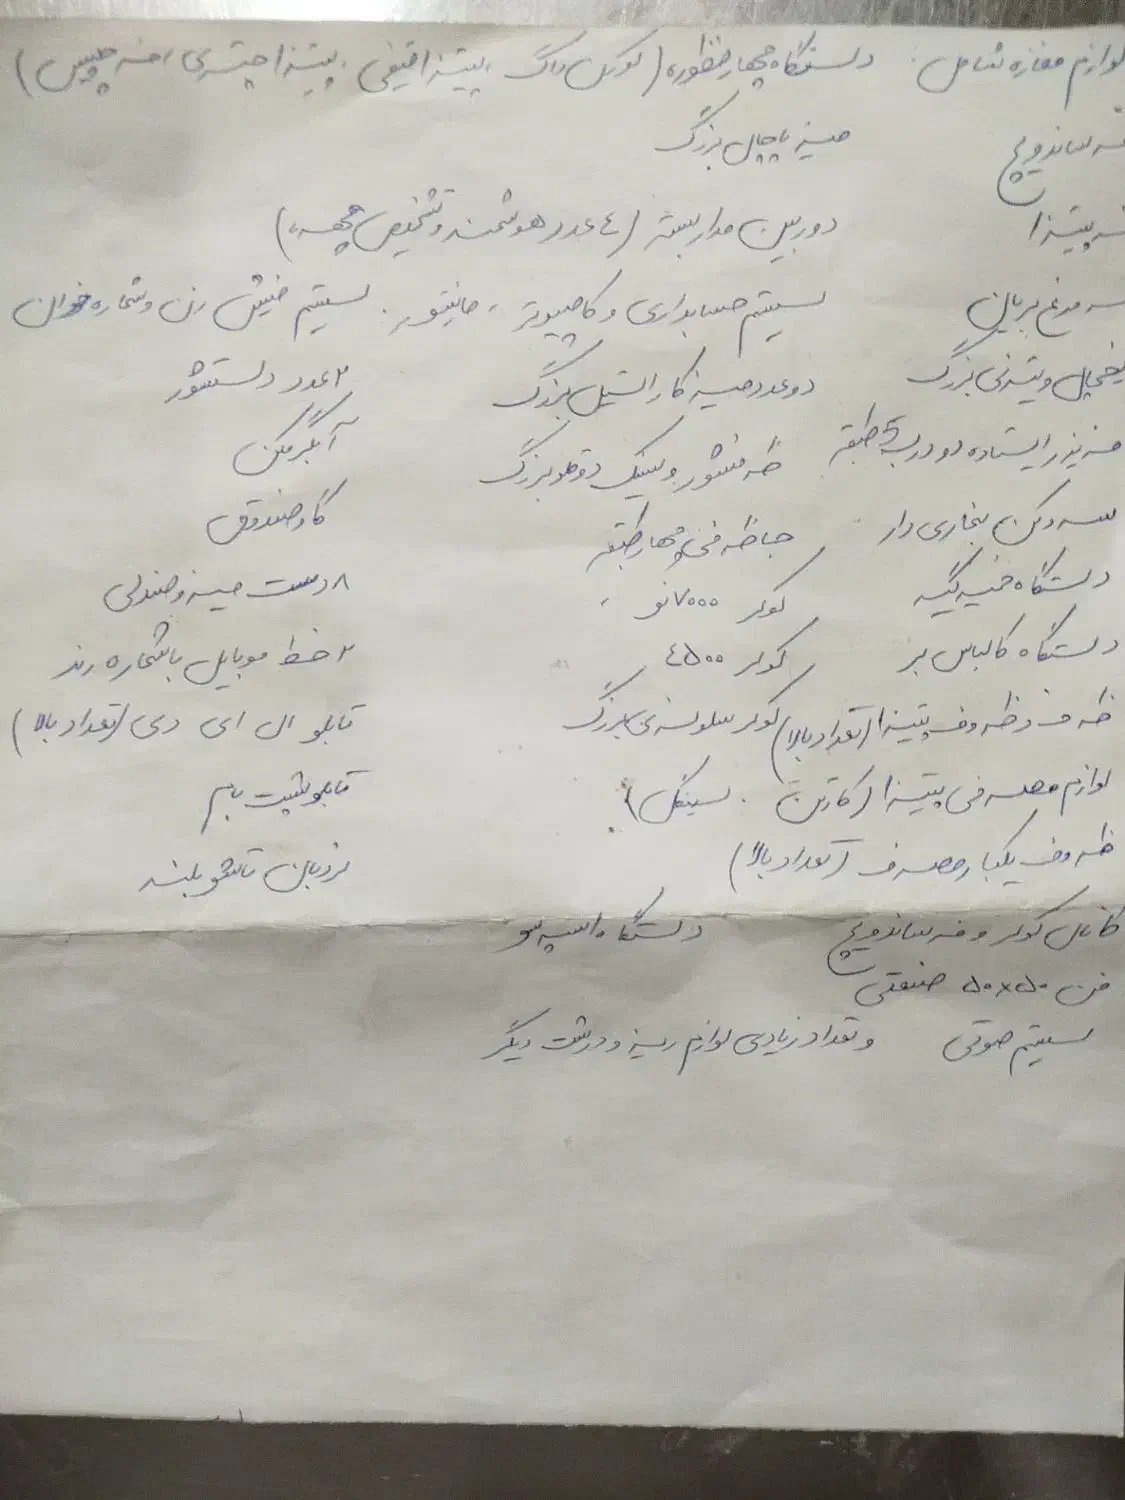 لوازم مغازه شامل: دستگاه چهار منظوره (کورن داگ، پیتزا قیفی، پیتزا چتری، فنر چیپس)
ساندویچ میز یاچال بزرگ
پیتزا دوربین مداربسته (٤ عدد هوشمند و تشخیص چهره)
مرغ بریان سیستم حسابداری و کامپیوتر، مانیتور. سیستم فیش زن و شماره خوان
یخچال ویترنی بزرگ دو عدد میز کار استیل بزرگ ۲ عدد دستشور
فریزر ایستاده دو درب 5 طبقه ظرفشور و سینک دوقلو بزرگ آبگرمکن
سرخ کن بخاری دار جاظرفی چهار طبقه گاوصندوق
دستگاه خمیرگیر کولر ۷۰۰۰ نو ۸ دست میز و صندلی
دستگاه کالباس بر کولر ٤۵۰۰ ۲ خط موبایل با شماره رند
ظرف و ظروف پیتزا (تعداد بالا) کولر سلولزی بزرگ تابلو ال ای دی (تعداد بالا)
لوازم مصرفی پیتزا (کارتن. سینگل) تابلو پشت بام
ظروف یکبار مصرف (تعداد بالا) نردبان تاشو بلند
کانال کولر و فر ساندویچ دستگاه اسپرسو
فن ۵۰×۵۰ صنعتی
سیستم صوتی و تعداد زیادی لوازم ریز و درشت دیگر